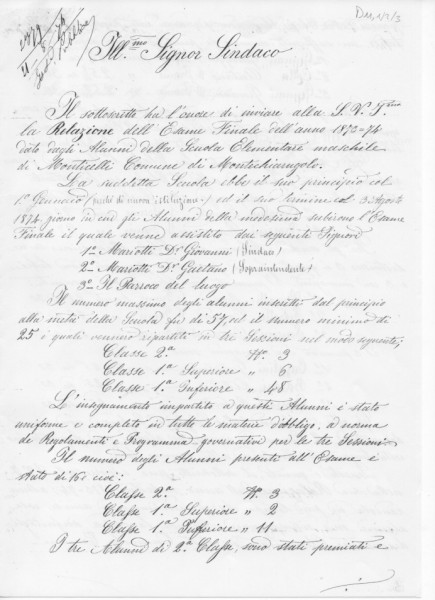 Ill.mo Signor Sindaco
Il sottoscritto ha l'onore di inviare alla S. V. Ill.ma
la Relazione dell'Esame Finale dell'anno 1873=74
dato dagli Alunni della Scuola Elementare maschile
di Monticelli Comune di Montechiarugolo.
La suddetta Scuola ebbe il suo principio col
1° Gennaio (perchè di nuova istituzione) ed il suo termine col 3 Agosto
1874 giorno in cui gli Alunni della medesima subirono l'Esame
Finale il quale venne assistito dai seguenti Signori
1° Mariotti Dr. Giovanni (Sindaco)
2° Mariotti Dr. Gaetano (Sopraintendente)
3° Il Parroco del luogo
Il numero massimo degli alunni inscritti dal principio
alla metà della Scuola fu di 57, ed il numero minimo di
25 i quali vennero ripartiti in tre Sessioni nel modo seguente;
Classe 2.a N.° 3
Classe 1.a Superiore " 6
Classe 1.a Inferiore " 48
L'insegnamento impartito a questi Alunni è stato
uniforme e completo in tutte le materie d'obbligo, a norma
de Regolamenti e Programmi governativi per le tre Sessioni
Il numero degli Alunni presenti all'Esame è
stato di 16 cioè:
Classe 2.a N.° 3
Classe 1.a Superiore " 2
Classe 1.a Inferiore " 11
I tre Alunni di 2.a Classe, sono stati premiati e